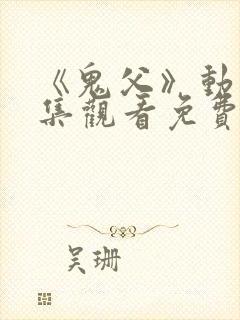 《鬼父》動
集觀看免費
吴珊